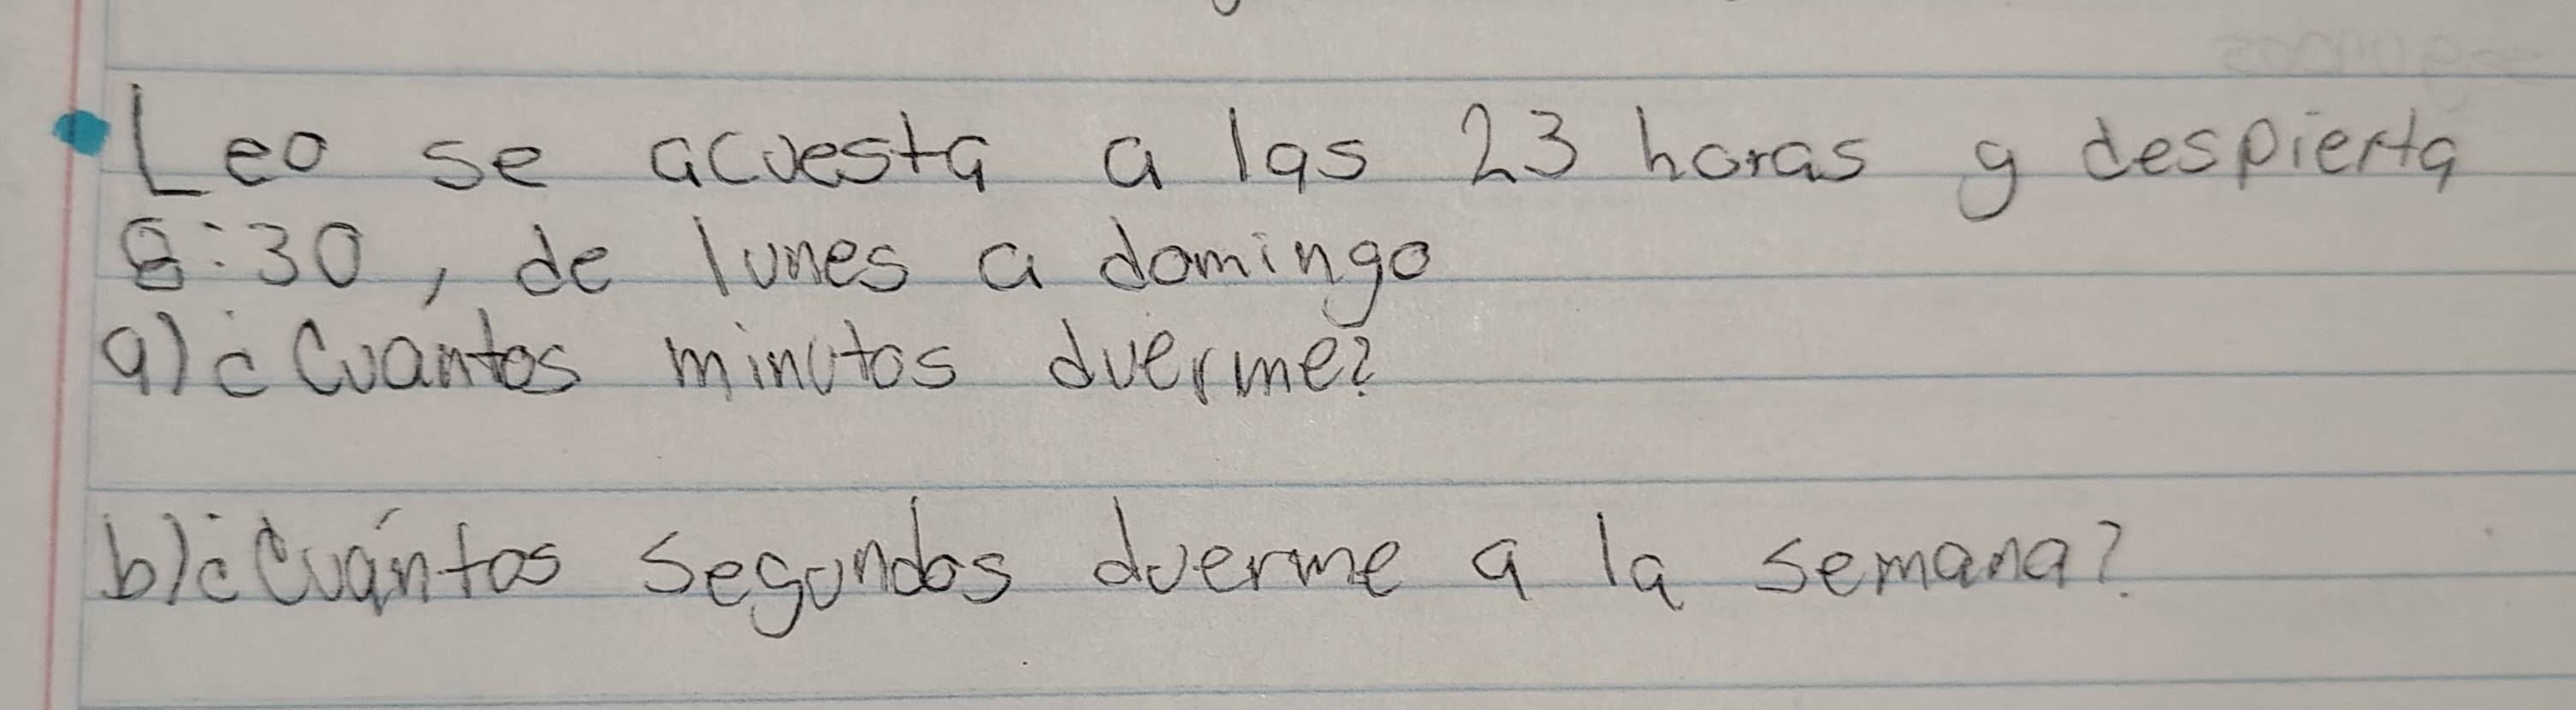 Leo se acuesta a las 23 horas y despierta
8:30, de lunes a domingo
a) ¿Cuántos minutos duerme?
b) ¿Cuántos segundos duerme a la semana?